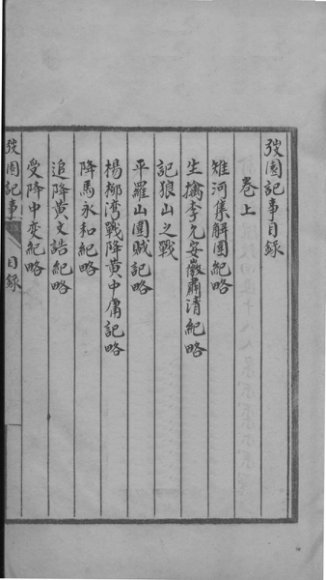 弢園記事目錄
卷上
雉河集解圍紀略
生擒李允安徽肅清紀略
記狼山之戰
平羅山圍賊記略
楊柳灣戰降黃中庸記略
降馬永和紀略
追降黃文誥紀略
受降中變紀略
弢園記事 目錄